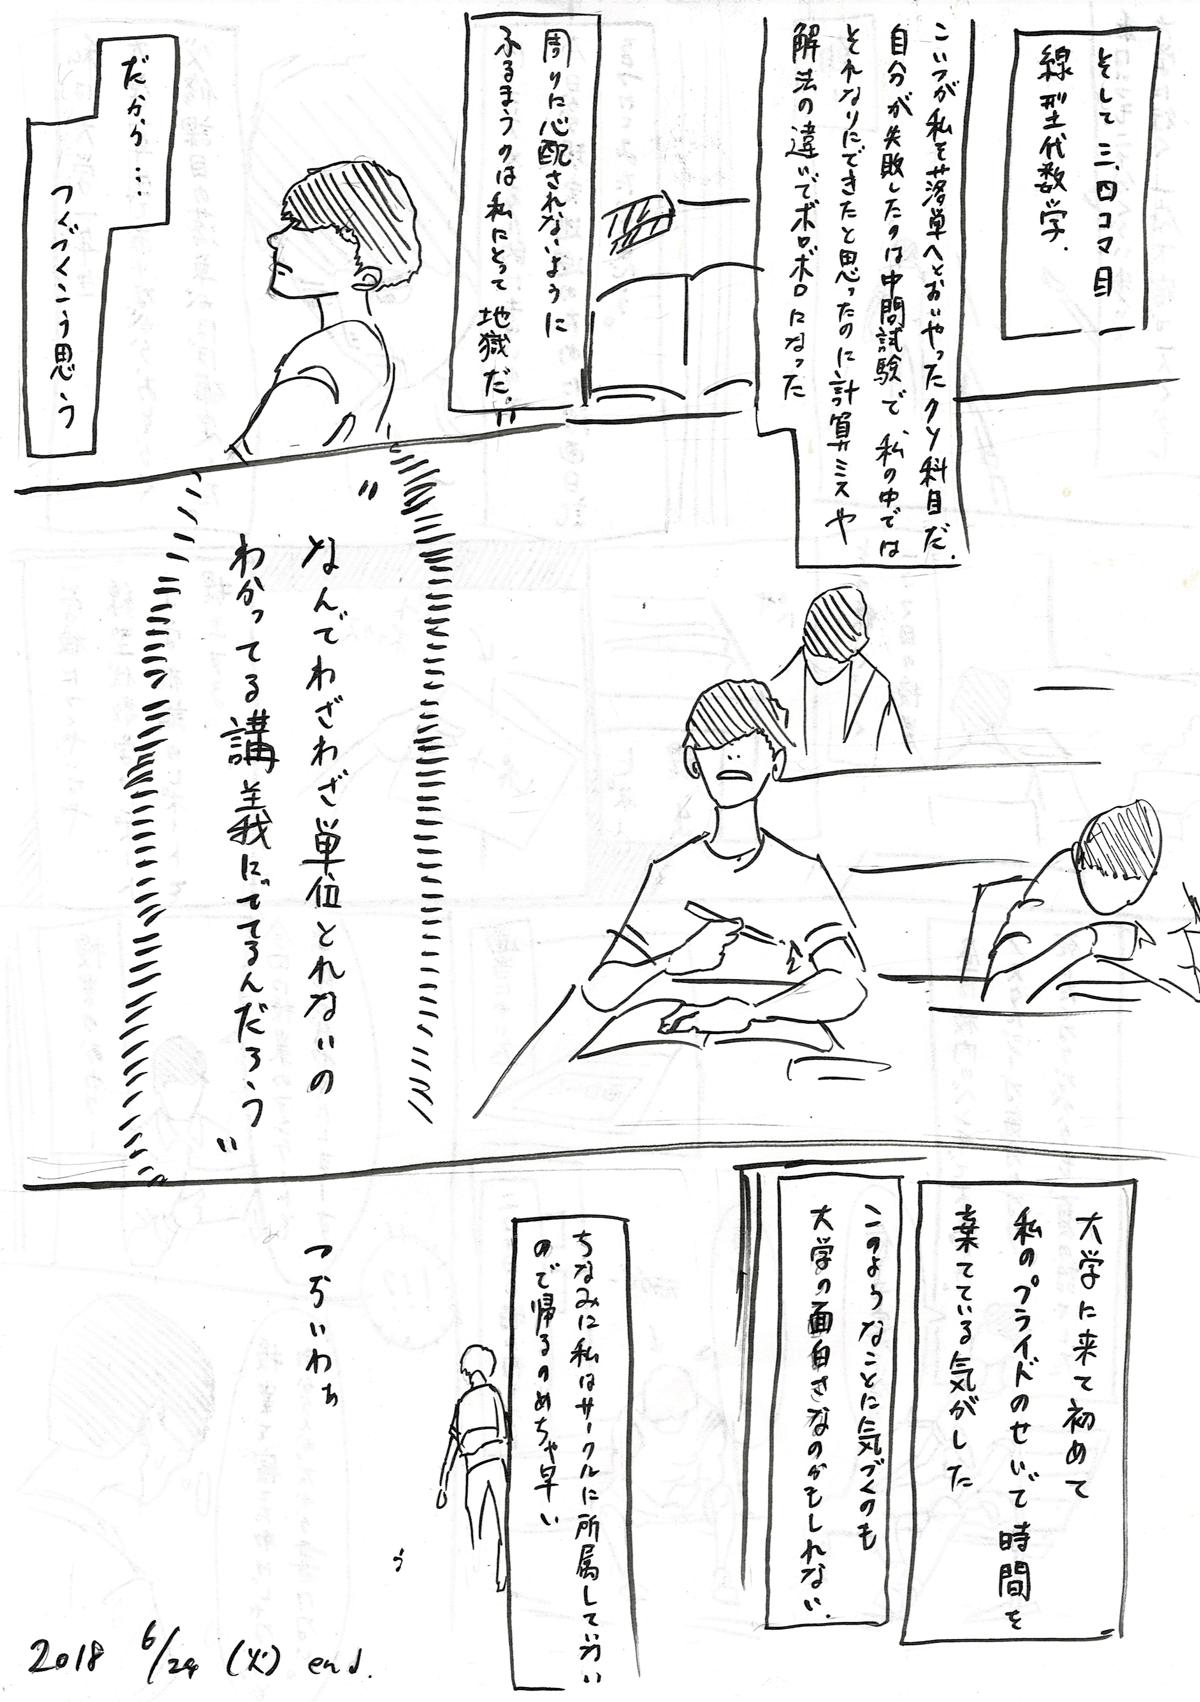 そして三、四コマ目
線型代数学.
こいつが私を落単へとおいやったクソ科目だ.
自分が失敗したのは中間試験で、私の中では
それなりにできたと思ったのに計算ミスや
解法の違いでボロボロになった
周りに心配されないように
ふるまうのは私にとって地獄だ。
だから…
つくづくこう思う
"なんでわざわざ単位とれないの
わかってる講義にでてるんだろう"
大学に来て初めて
私のプライドのせいで時間を
棄てている気がした
このようなことに気づくのも
大学の面白さなのかもしれない.
ちなみに私はサークルに所属していない
ので帰るのめちゃ早い
つぢいわぁ
2018 6/24 (火) end.